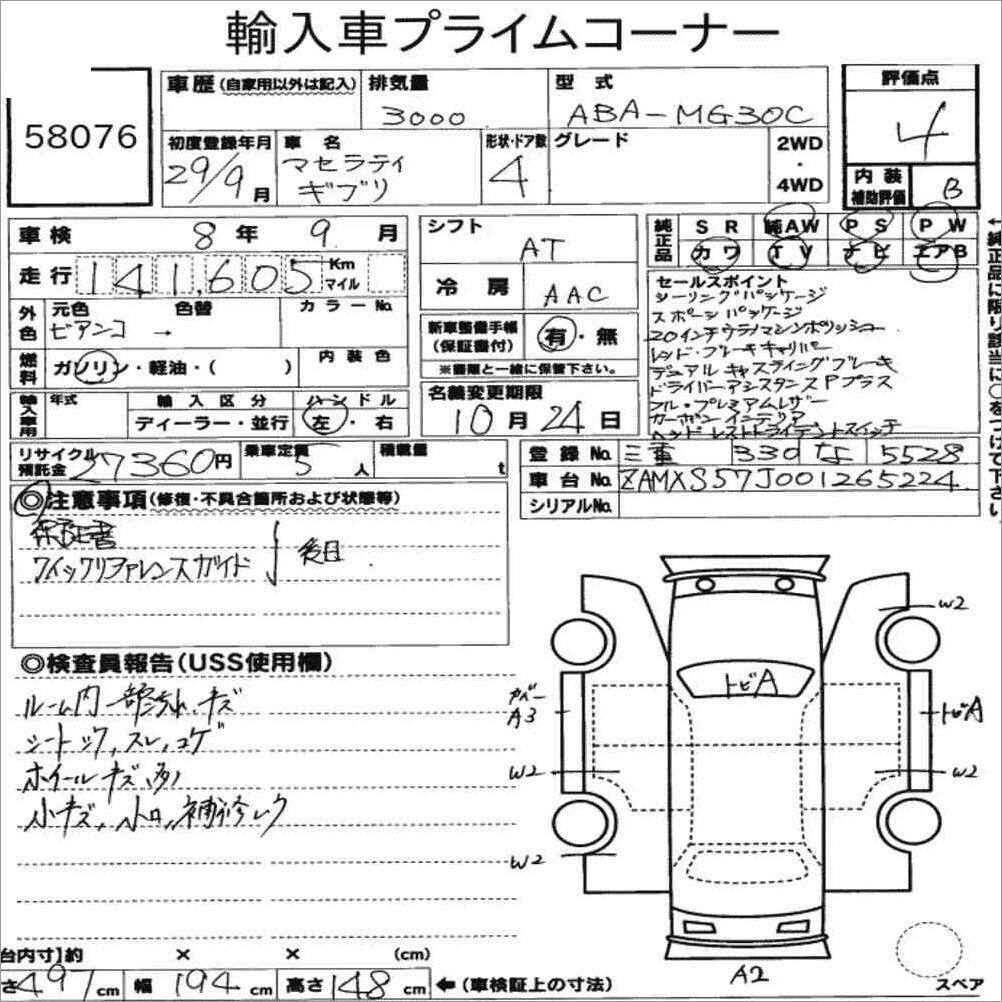 輸入車プライムコーナー
58076
車歴(自家用以外は記入) 排気量 型式 評価点
3000 ABA-MG30C 4
初度登録年月 車名 形状・ドア数 グレード 2WD・4WD
29/9月 マセラティ ギブリ 4
内装補助評価 B
車検 8年 9月
走行 141,605 Km マイル
外色 元色 色替 カラーNo.
ビアンコ →
燃料 ガソリン・軽油・( ) 内装色
輸入車用 年式 輸入区分 ハンドル
ディーラー・並行 左・右
シフト AT
冷房 AAC
新車整備手帳(保証書付) 有・無
※書類と一緒に保管下さい。
名義変更期限
10月24日
純正品 SR 純AW PS PW
カワ TV ナビ エアB
←純正品に限り該当に○をつけて下さい
セールスポイント
シーリングパッケージ
スポーツパッケージ
20インチウラノマシンポリッシュ
レッド・ブレーキキャリパー
デュアルキャスティングブレーキ
ドライバーアシスタンスPプラス
フル・プレミアムレザー
カーボンインテリア
ヘッドレストトライデントスイッチ
リサイクル預託金 27360円 乗車定員 5人 積載量 t
登録No. 三重 330 な 5528
車台No. ZAMXS57J001265224
シリアルNo.
◎注意事項(修復・不具合箇所および状態等)
保証書
クイックリファレンスガイド 後日
◎検査員報告(USS使用欄)
ルーム内一部汚れ、キズ
シートシワ、スレ、コゲ
ホイールキズ(多)
小キズ、小凹、補修レク
トビA
W2
カバー
A3
トビA
W2
W2
W2
A2
スペア
台内寸】約 × × (cm)
さ497cm 幅194cm 高さ148cm ←(車検証上の寸法)